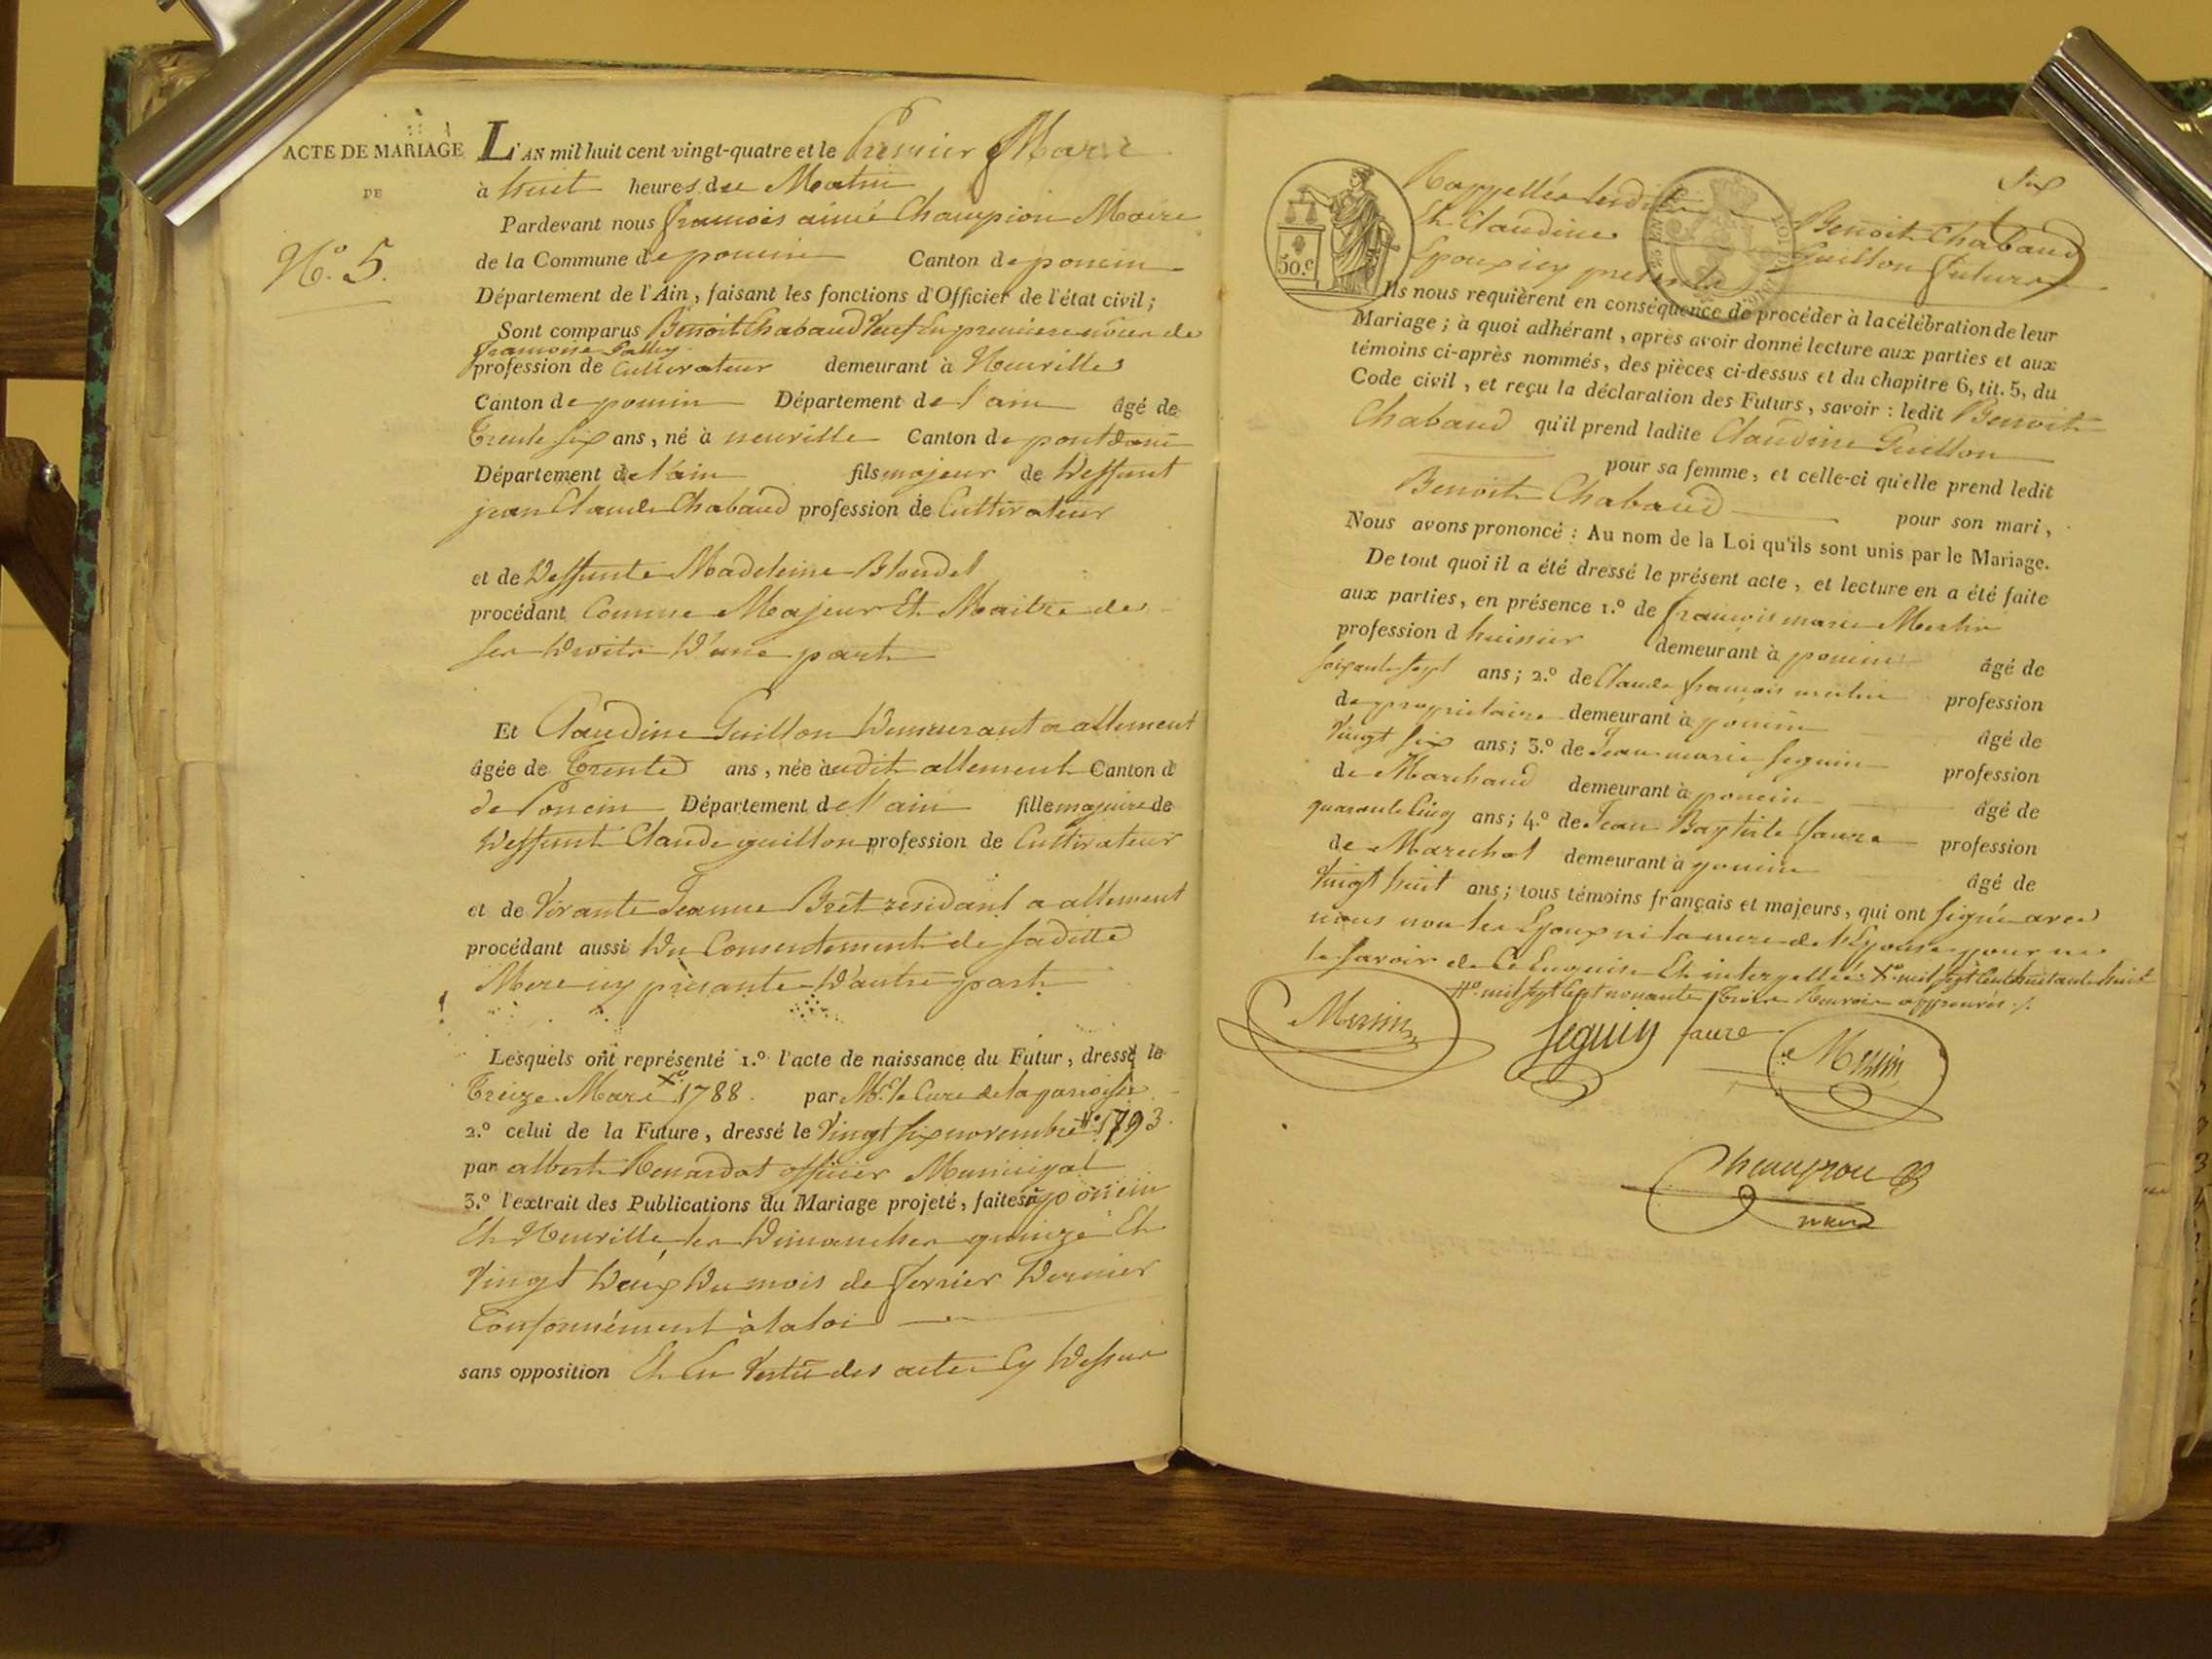 ACTE DE MARIAGE
DE
N.° 5.
L'AN mil huit cent vingt-quatre et le Premier Mars
à huit heures du Matin
Pardevant nous françois aimé Champion Maire
de la Commune de poncin Canton de poncin
Département de l'Ain, faisant les fonctions d'Officier de l'état civil;
Sont comparus Benoit Chabaud Veuf En premiere noces de
françoise
profession de Cultivateur demeurant à Neuville
Canton de poncin Département de l'ain âgé de
Trente six ans, né à neuville Canton de pontdain
Département de l'ain fils majeur de deffunt
jean Claude Chabaud profession de Cultivateur
et de deffunte Madeleine Blondel
procédant Comme Majeur Et Maitre de
ses droits d'une part
Et Claudine Guillon demeurant a allement
âgée de Trente ans, née audit allement Canton d
de Poncin Département de l'ain fille majeure de
deffunt Claude guillon profession de Cultivateur
et de Vivante Jeanne Bret residant a allement
procédant aussi du Consentement de saditte
Mere icy présante d'autre part
Lesquels ont représenté 1.° l'acte de naissance du Futur, dressé le
Treize Mars X° 1788. par Mr. le Curé de la paroisse
2.° celui de la Future, dressé le Vingt six novembre #° 1793.
par albert Renardat officier Municipal
3.° l'extrait des Publications du Mariage projeté, faites à poncin
Et Neuville les dimanches quinze Et
Vingt deux du mois de fevrier dernier
Conformément à la loi
sans opposition Et En Vertu des actes Cy dessus
six
50.c
Rappellés lesdits Benoit Chabaud
Et Claudine Guillon futurs
Epoux icy presents
Ils nous requièrent en conséquence de procéder à la célébration de leur
Mariage; à quoi adhérant, après avoir donné lecture aux parties et aux
témoins ci-après nommés, des pièces ci-dessus et du chapitre 6, tit. 5, du
Code civil, et reçu la déclaration des Futurs, savoir : ledit Benoit
Chabaud qu'il prend ladite Claudine Guillon
pour sa femme, et celle-ci qu'elle prend ledit
Benoit Chabaud pour son mari,
Nous avons prononcé : Au nom de la Loi qu'ils sont unis par le Mariage.
De tout quoi il a été dressé le présent acte, et lecture en a été faite
aux parties, en présence 1.° de françois marie Merlin
profession d huissier demeurant à poncin âgé de
soixante sept ans; 2.° de Claude françois merlin profession
de proprietaire demeurant à poncin âgé de
Vingt six ans; 3.° de Jean marie seguin profession
de Marchand demeurant à poncin âgé de
quarante Cinq ans; 4.° de Jean Baptiste faure profession
de Marechal demeurant à poncin âgé de
Vingt huit ans; tous témoins français et majeurs, qui ont signé avec
nous non les Epoux ni la mere de l'Epouse pour ne
le savoir de Ce Enquise Et interpellée X° mil sept Cent huitante huit
#° mil sept Cent nonante Trois Renvois approuvés ./.
Merlin Seguin faure Merlin
Champion
maire